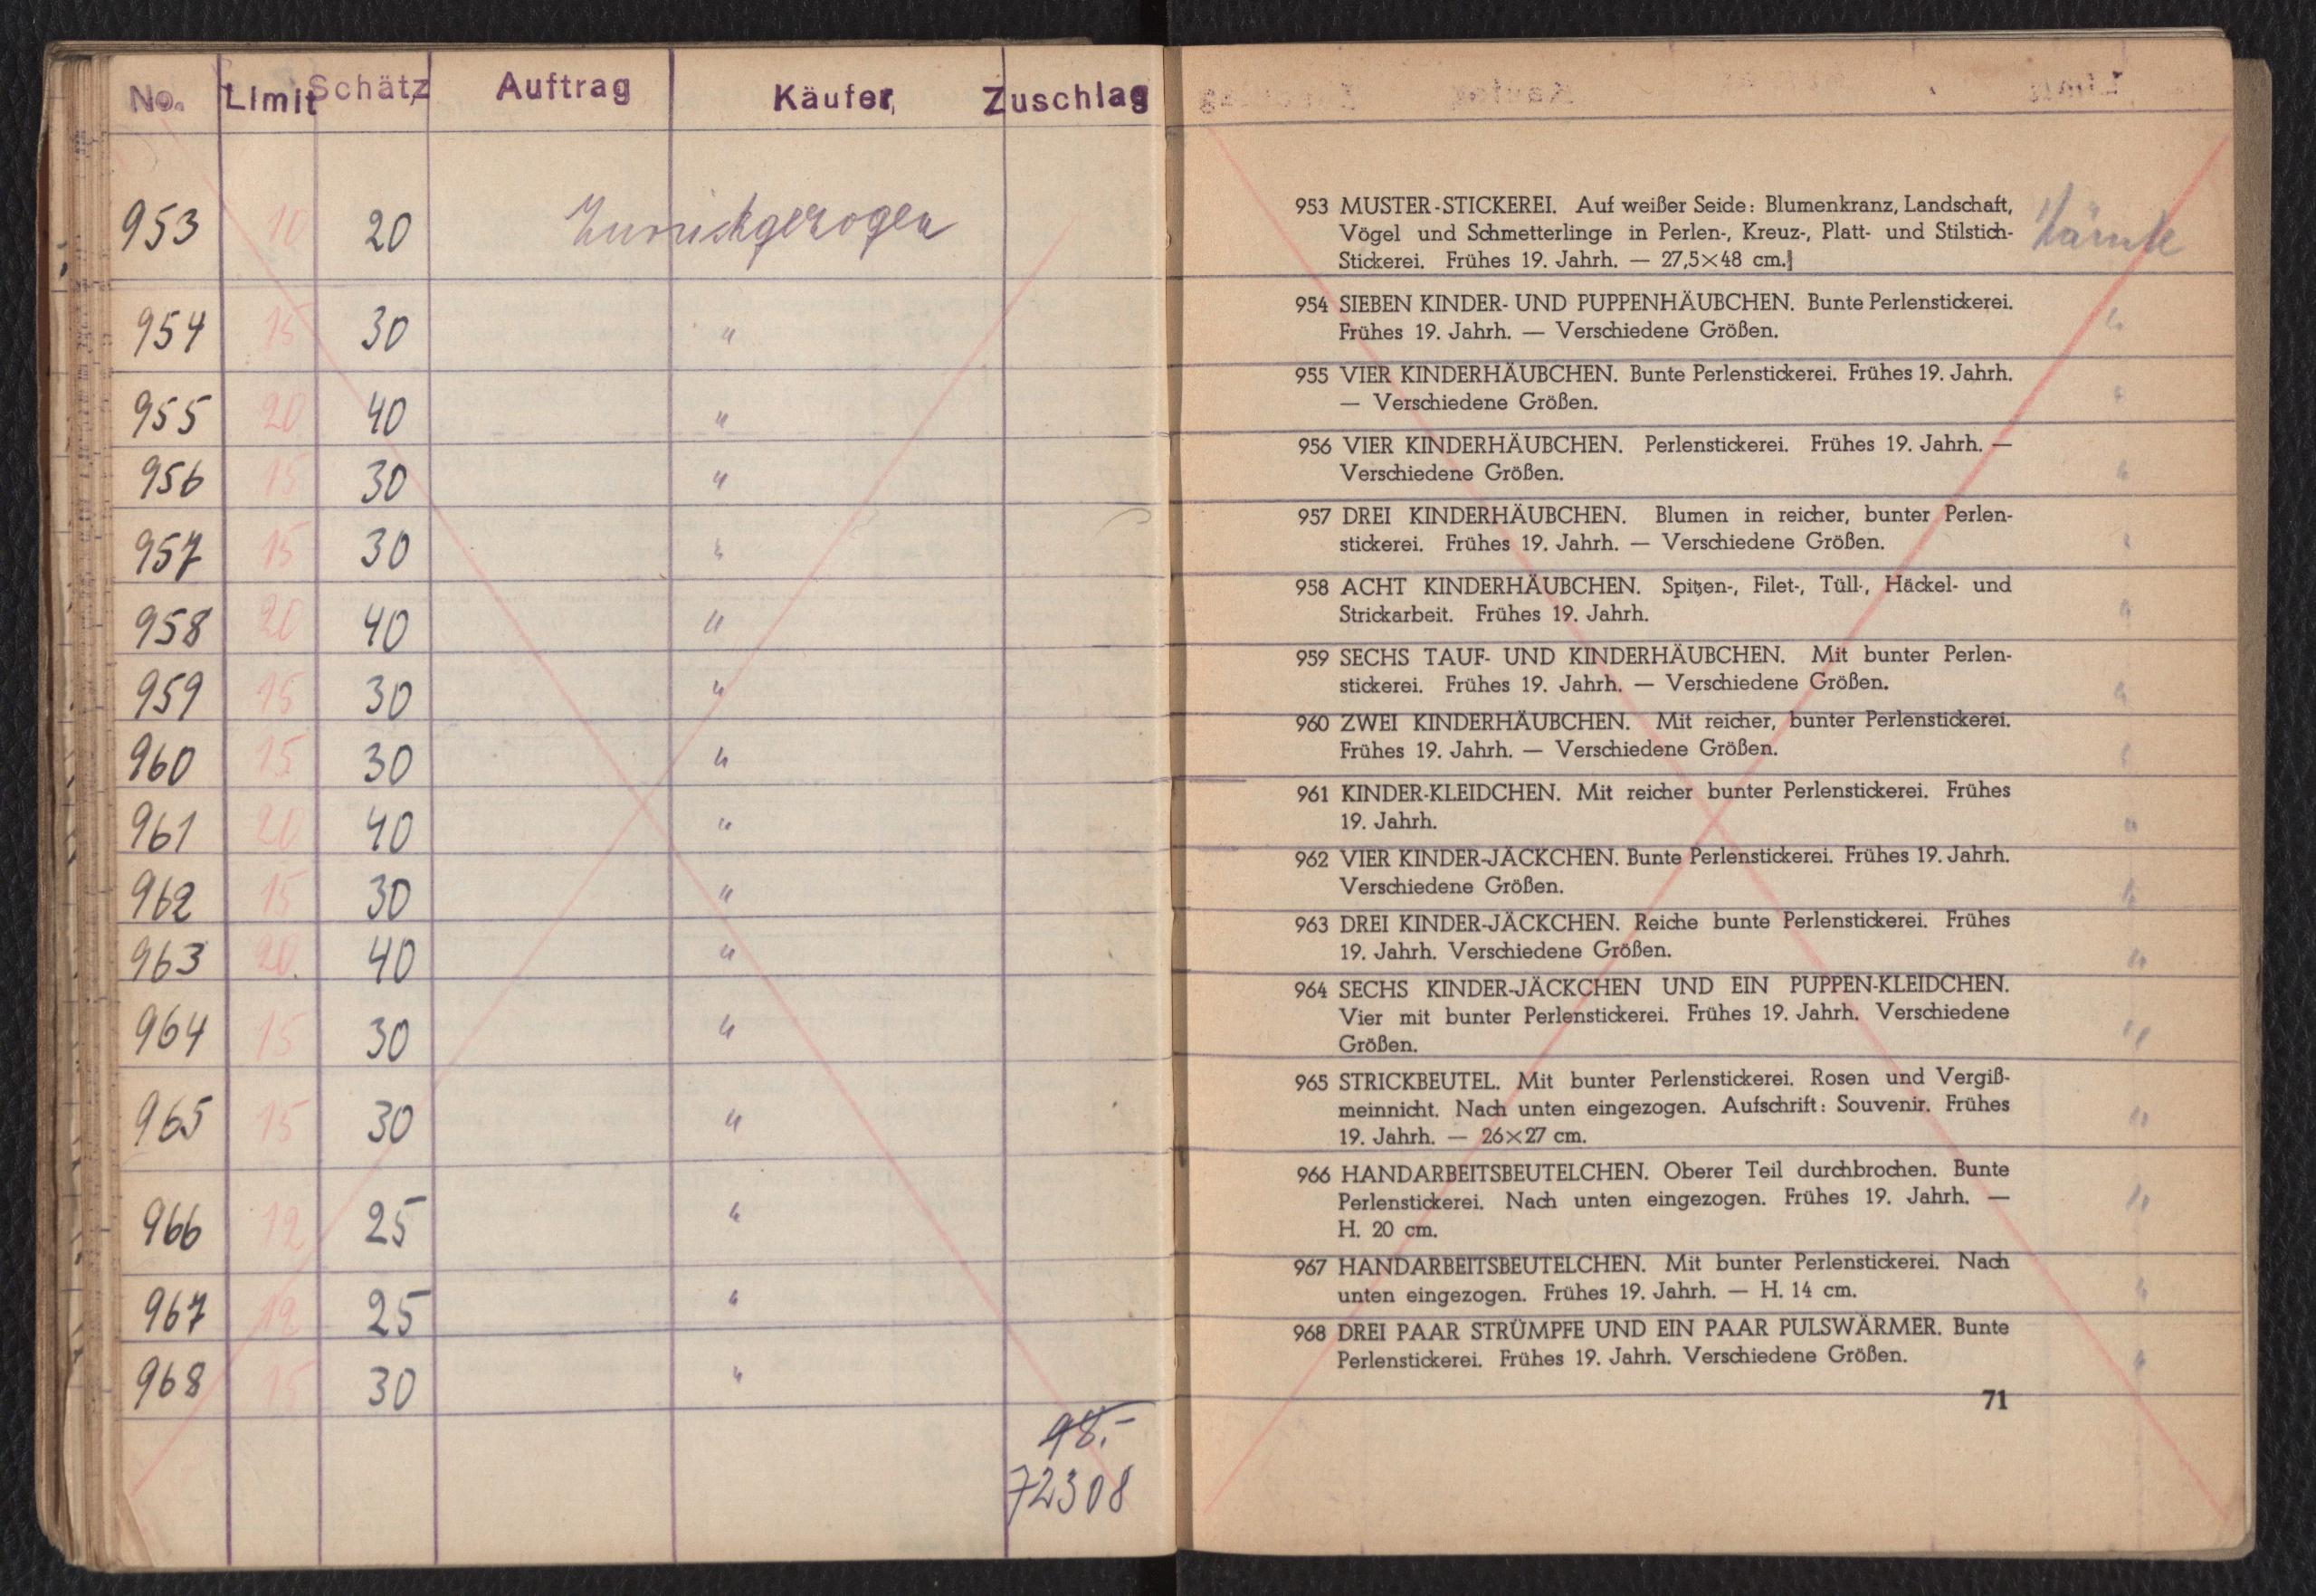 No. Limit Schätz Auftrag Käufer Zuschlag
953 10 20 Zurückgezogen
954 15 30 "
955 20 40 "
956 15 30 "
957 15 30 "
958 20 40 "
959 15 30 "
960 15 30 "
961 20 40 "
962 15 30 "
963 20. 40 "
964 15 30 "
965 15 30 "
966 12 25 "
967 12 25 "
968 15 30 "
98.-
72308
953 MUSTER-STICKEREI. Auf weißer Seide: Blumenkranz, Landschaft,
Vögel und Schmetterlinge in Perlen-, Kreuz-, Platt- und Stilstich-
Stickerei. Frühes 19. Jahrh. — 27,5×48 cm.
"
954 SIEBEN KINDER- UND PUPPENHÄUBCHEN. Bunte Perlenstickerei.
Frühes 19. Jahrh. — Verschiedene Größen.
"
955 VIER KINDERHÄUBCHEN. Bunte Perlenstickerei. Frühes 19. Jahrh.
— Verschiedene Größen.
"
956 VIER KINDERHÄUBCHEN. Perlenstickerei. Frühes 19. Jahrh. —
Verschiedene Größen.
"
957 DREI KINDERHÄUBCHEN. Blumen in reicher, bunter Perlen-
stickerei. Frühes 19. Jahrh. — Verschiedene Größen.
"
958 ACHT KINDERHÄUBCHEN. Spitzen-, Filet-, Tüll-, Häckel- und
Strickarbeit. Frühes 19. Jahrh.
"
959 SECHS TAUF- UND KINDERHÄUBCHEN. Mit bunter Perlen-
stickerei. Frühes 19. Jahrh. — Verschiedene Größen.
"
960 ZWEI KINDERHÄUBCHEN. Mit reicher, bunter Perlenstickerei.
Frühes 19. Jahrh. — Verschiedene Größen.
"
961 KINDER-KLEIDCHEN. Mit reicher bunter Perlenstickerei. Frühes
19. Jahrh.
"
962 VIER KINDER-JÄCKCHEN. Bunte Perlenstickerei. Frühes 19. Jahrh.
Verschiedene Größen.
"
963 DREI KINDER-JÄCKCHEN. Reiche bunte Perlenstickerei. Frühes
19. Jahrh. Verschiedene Größen.
"
964 SECHS KINDER-JÄCKCHEN UND EIN PUPPEN-KLEIDCHEN.
Vier mit bunter Perlenstickerei. Frühes 19. Jahrh. Verschiedene
Größen.
"
965 STRICKBEUTEL. Mit bunter Perlenstickerei. Rosen und Vergiß-
meinnicht. Nach unten eingezogen. Aufschrift: Souvenir. Frühes
19. Jahrh. — 26×27 cm.
"
966 HANDARBEITSBEUTELCHEN. Oberer Teil durchbrochen. Bunte
Perlenstickerei. Nach unten eingezogen. Frühes 19. Jahrh. —
H. 20 cm.
"
967 HANDARBEITSBEUTELCHEN. Mit bunter Perlenstickerei. Nach
unten eingezogen. Frühes 19. Jahrh. — H. 14 cm.
"
968 DREI PAAR STRÜMPFE UND EIN PAAR PULSWÄRMER. Bunte
Perlenstickerei. Frühes 19. Jahrh. Verschiedene Größen.
"
71